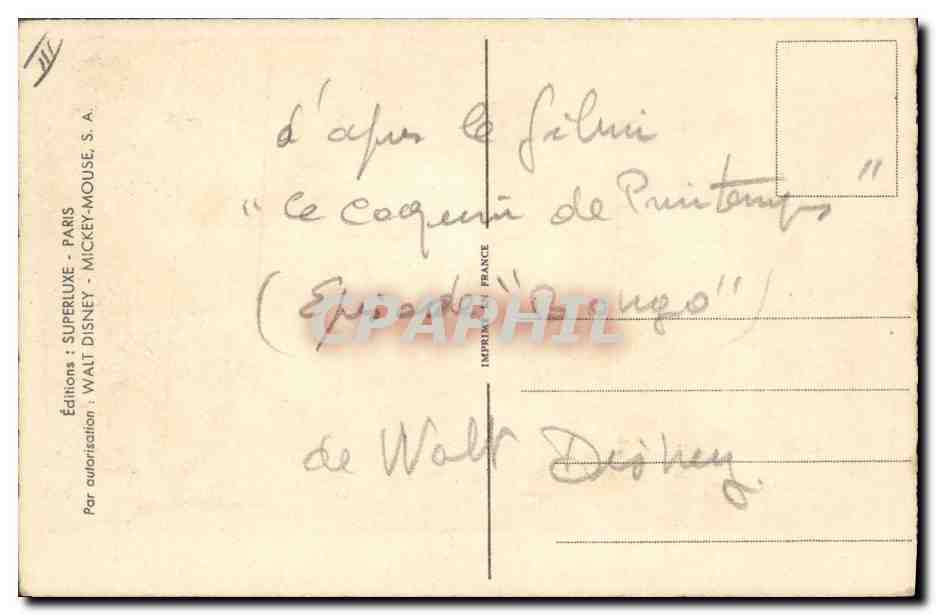 III
Éditions : SUPERLUXE - PARIS
Par autorisation : WALT DISNEY - MICKEY-MOUSE, S. A.
d'apres le film
" Ce Coquin de Printemps "
( Episode " Bongo " )
CPAPHIL
de Walt Disney
IMPRIMÉ EN FRANCE